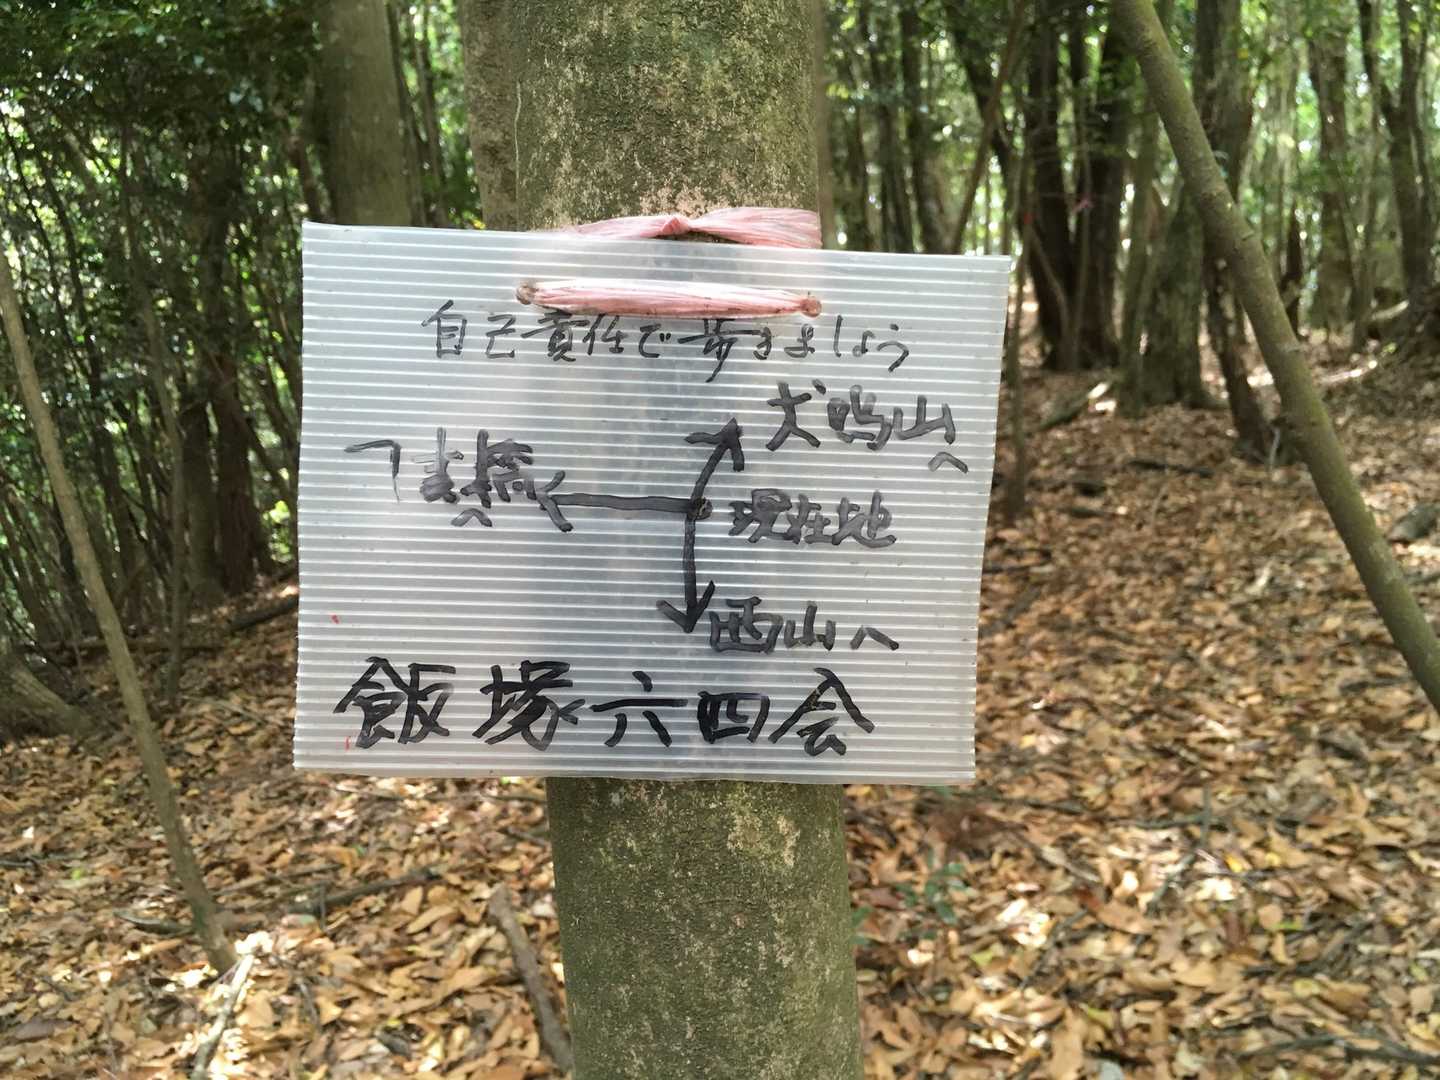 自己責任で歩きましょう
犬鳴山へ
橋へ
現在地
西山へ
飯塚六四会